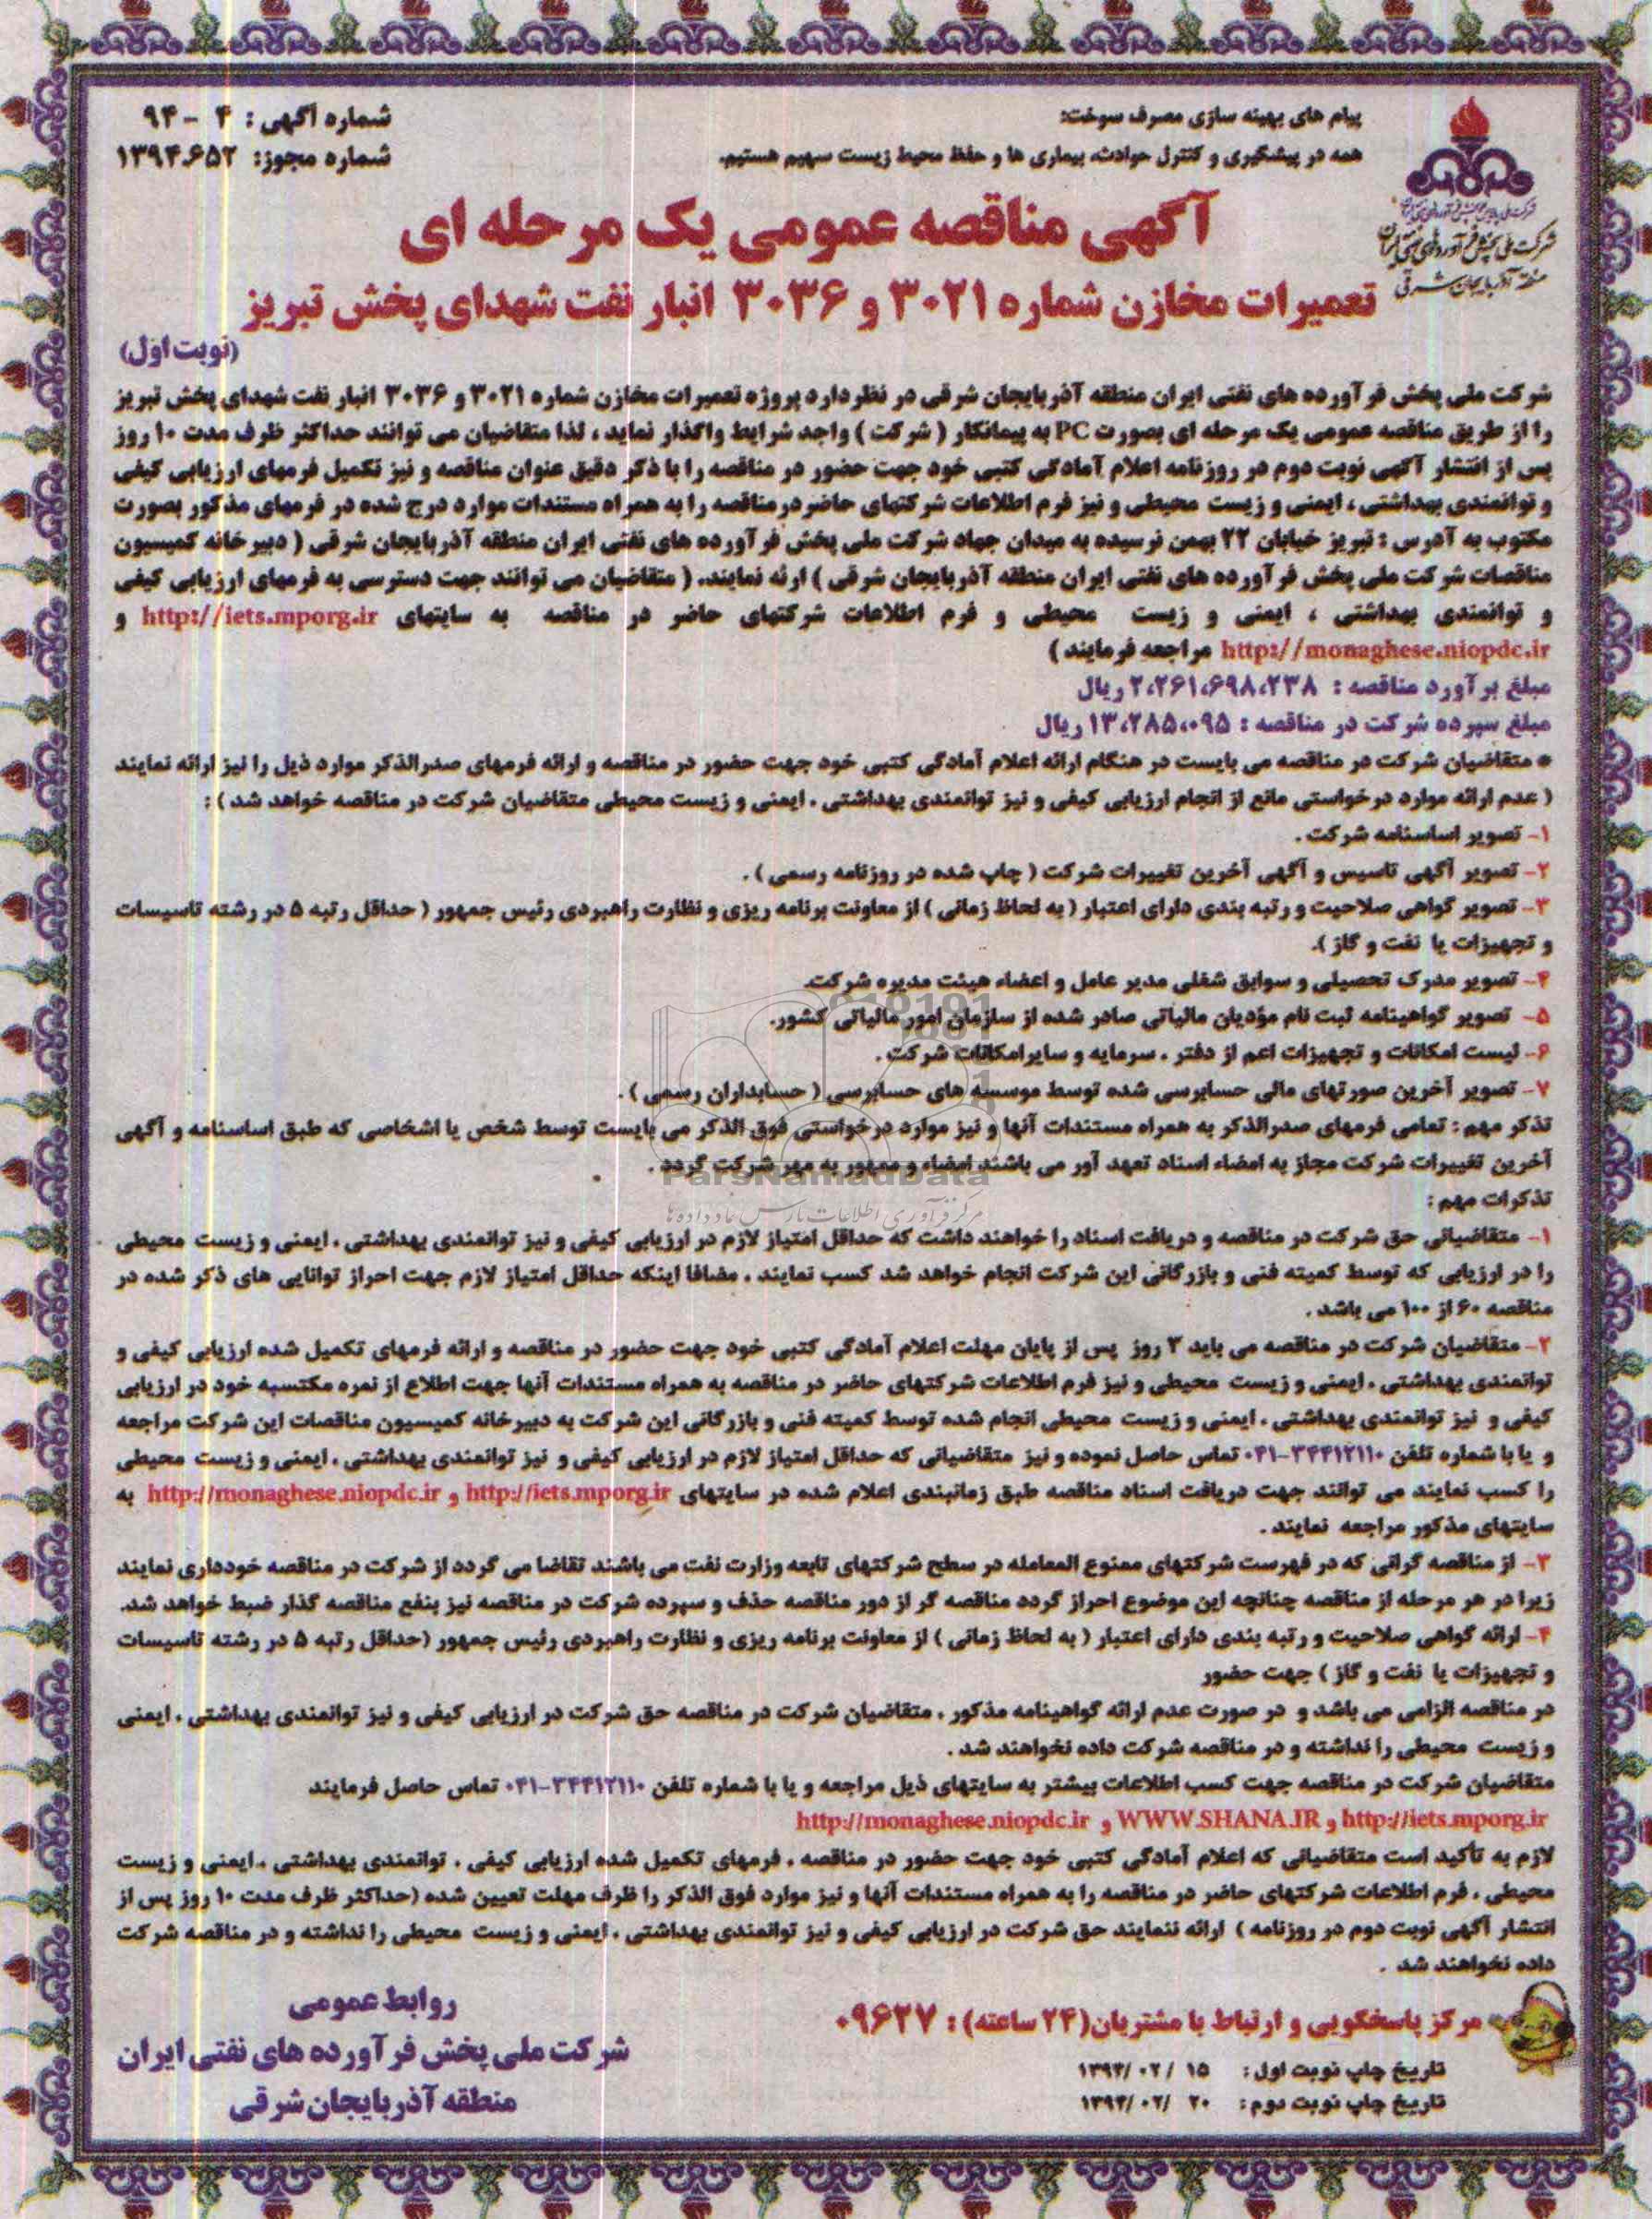 پیام های بهینه سازی مصرف سوخت:
همه در پیشگیری و کنترل حوادث، بیماری ها و حفظ محیط زیست سهیم هستیم.
شماره آگهی : ۴ - ۹۴
شماره مجوز: ۱۳۹۴.۶۵۲
شرکت ملی پخش فرآورده‌های نفتی ایران
منطقه آذربایجان شرقی
آگهی مناقصه عمومی یک مرحله ای
تعمیرات مخازن شماره ۳۰۲۱ و ۳۰۳۶ انبار نفت شهدای پخش تبریز
(نوبت اول)
شرکت ملی پخش فرآورده های نفتی ایران منطقه آذربایجان شرقی در نظر دارد پروژه تعمیرات مخازن شماره ۳۰۲۱ و ۳۰۳۶ انبار نفت شهدای پخش تبریز
را از طریق مناقصه عمومی یک مرحله ای بصورت PC به پیمانکار ( شرکت ) واجد شرایط واگذار نماید ، لذا متقاضیان می توانند حداکثر ظرف مدت ۱۰ روز
پس از انتشار آگهی نوبت دوم در روزنامه اعلام آمادگی کتبی خود جهت حضور در مناقصه را با ذکر دقیق عنوان مناقصه و نیز تکمیل فرمهای ارزیابی کیفی
و توانمندی بهداشتی ، ایمنی و زیست محیطی و نیز فرم اطلاعات شرکتهای حاضر در مناقصه را به همراه مستندات موارد درج شده در فرمهای مذکور بصورت
مکتوب به آدرس : تبریز خیابان ۲۲ بهمن نرسیده به میدان جهاد شرکت ملی پخش فرآورده های نفتی ایران منطقه آذربایجان شرقی ( دبیرخانه کمیسیون
مناقصات شرکت ملی پخش فرآورده های نفتی ایران منطقه آذربایجان شرقی ) ارئه نمایند. ( متقاضیان می توانند جهت دسترسی به فرمهای ارزیابی کیفی
و توانمندی بهداشتی ، ایمنی و زیست محیطی و فرم اطلاعات شرکتهای حاضر در مناقصه به سایتهای http://iets.mporg.ir و
http://monaghese.niopdc.ir مراجعه فرمایند )
مبلغ برآورد مناقصه : ۲،۲۶۱،۶۹۸،۲۳۸ ریال
مبلغ سپرده شرکت در مناقصه : ۱۳،۲۸۵،۰۹۵ ریال
* متقاضیان شرکت در مناقصه می بایست در هنگام ارائه اعلام آمادگی کتبی خود جهت حضور در مناقصه و ارائه فرمهای صدرالذکر موارد ذیل را نیز ارائه نمایند
( عدم ارائه موارد درخواستی مانع از انجام ارزیابی کیفی و نیز توانمندی بهداشتی ، ایمنی و زیست محیطی متقاضیان شرکت در مناقصه خواهد شد ) :
۱- تصویر اساسنامه شرکت .
۲- تصویر آگهی تاسیس و آگهی آخرین تغییرات شرکت ( چاپ شده در روزنامه رسمی ) .
۳- تصویر گواهی صلاحیت و رتبه بندی دارای اعتبار ( به لحاظ زمانی ) از معاونت برنامه ریزی و نظارت راهبردی رئیس جمهور ( حداقل رتبه ۵ در رشته تاسیسات
و تجهیزات یا نفت و گاز ).
۴- تصویر مدرک تحصیلی و سوابق شغلی مدیر عامل و اعضاء هیئت مدیره شرکت.
۵- تصویر گواهینامه ثبت نام مؤدیان مالیاتی صادر شده از سازمان امور مالیاتی کشور.
۶- لیست امکانات و تجهیزات اعم از دفتر ، سرمایه و سایر امکانات شرکت .
۷- تصویر آخرین صورتهای مالی حسابرسی شده توسط موسسه های حسابرسی ( حسابداران رسمی ) .
تذکر مهم : تمامی فرمهای صدرالذکر به همراه مستندات آنها و نیز موارد درخواستی فوق الذکر می بایست توسط شخص یا اشخاصی که طبق اساسنامه و آگهی
آخرین تغییرات شرکت مجاز به امضاء اسناد تعهد آور می باشند امضاء و ممهور به مهر شرکت گردد .
ParsNamadData
تذکرات مهم :
۱- متقاضیانی حق شرکت در مناقصه و دریافت اسناد را خواهند داشت که حداقل امتیاز لازم در ارزیابی کیفی و نیز توانمندی بهداشتی ، ایمنی و زیست محیطی
را در ارزیابی که توسط کمیته فنی و بازرگانی این شرکت انجام خواهد شد کسب نمایند ، مضافا اینکه حداقل امتیاز لازم جهت احراز توانایی های ذکر شده در
مناقصه ۶۰ از ۱۰۰ می باشد .
۲- متقاضیان شرکت در مناقصه می باید ۳ روز پس از پایان مهلت اعلام آمادگی کتبی خود جهت حضور در مناقصه و ارائه فرمهای تکمیل شده ارزیابی کیفی و
توانمندی بهداشتی ، ایمنی و زیست محیطی و نیز فرم اطلاعات شرکتهای حاضر در مناقصه به همراه مستندات آنها جهت اطلاع از نمره مکتسبه خود در ارزیابی
کیفی و نیز توانمندی بهداشتی ، ایمنی و زیست محیطی انجام شده توسط کمیته فنی و بازرگانی این شرکت به دبیرخانه کمیسیون مناقصات این شرکت مراجعه
و یا با شماره تلفن ۳۴۴۱۲۱۱۰-۰۴۱ تماس حاصل نموده و نیز متقاضیانی که حداقل امتیاز لازم در ارزیابی کیفی و نیز توانمندی بهداشتی ، ایمنی و زیست محیطی
را کسب نمایند می توانند جهت دریافت اسناد مناقصه طبق زمانبندی اعلام شده در سایتهای http://iets.mporg.ir و http://monaghese.niopdc.ir به
سایتهای مذکور مراجعه نمایند .
۳- از مناقصه گرانی که در فهرست شرکتهای ممنوع المعامله در سطح شرکتهای تابعه وزارت نفت می باشند تقاضا می گردد از شرکت در مناقصه خودداری نمایند
زیرا در هر مرحله از مناقصه چنانچه این موضوع احراز گردد مناقصه گر از دور مناقصه حذف و سپرده شرکت در مناقصه نیز بنفع مناقصه گذار ضبط خواهد شد.
۴- ارائه گواهی صلاحیت و رتبه بندی دارای اعتبار ( به لحاظ زمانی ) از معاونت برنامه ریزی و نظارت راهبردی رئیس جمهور (حداقل رتبه ۵ در رشته تاسیسات
و تجهیزات یا نفت و گاز ) جهت حضور
در مناقصه الزامی می باشد و در صورت عدم ارائه گواهینامه مذکور ، متقاضیان شرکت در مناقصه حق شرکت در ارزیابی کیفی و نیز توانمندی بهداشتی ، ایمنی
و زیست محیطی را نداشته و در مناقصه شرکت داده نخواهند شد .
متقاضیان شرکت در مناقصه جهت کسب اطلاعات بیشتر به سایتهای ذیل مراجعه و یا با شماره تلفن ۳۴۴۱۲۱۱۰-۰۴۱ تماس حاصل فرمایند
http://iets.mporg.ir و WWW.SHANA.IR و http://monaghese.niopdc.ir
لازم به تأکید است متقاضیانی که اعلام آمادگی کتبی خود جهت حضور در مناقصه ، فرمهای تکمیل شده ارزیابی کیفی ، توانمندی بهداشتی ، ایمنی و زیست
محیطی ، فرم اطلاعات شرکتهای حاضر در مناقصه را به همراه مستندات آنها و نیز موارد فوق الذکر را ظرف مهلت تعیین شده (حداکثر ظرف مدت ۱۰ روز پس از
انتشار آگهی نوبت دوم در روزنامه ) ارائه ننمایند حق شرکت در ارزیابی کیفی و نیز توانمندی بهداشتی ، ایمنی و زیست محیطی را نداشته و در مناقصه شرکت
داده نخواهند شد .
مرکز پاسخگویی و ارتباط با مشتریان(۲۴ ساعته) : ۰۹۶۲۷
تاریخ چاپ نوبت اول: ۱۵ /۰۲ /۱۳۹۴
تاریخ چاپ نوبت دوم: ۲۰ /۰۲ /۱۳۹۴
روابط عمومی
شرکت ملی پخش فرآورده های نفتی ایران
منطقه آذربایجان شرقی